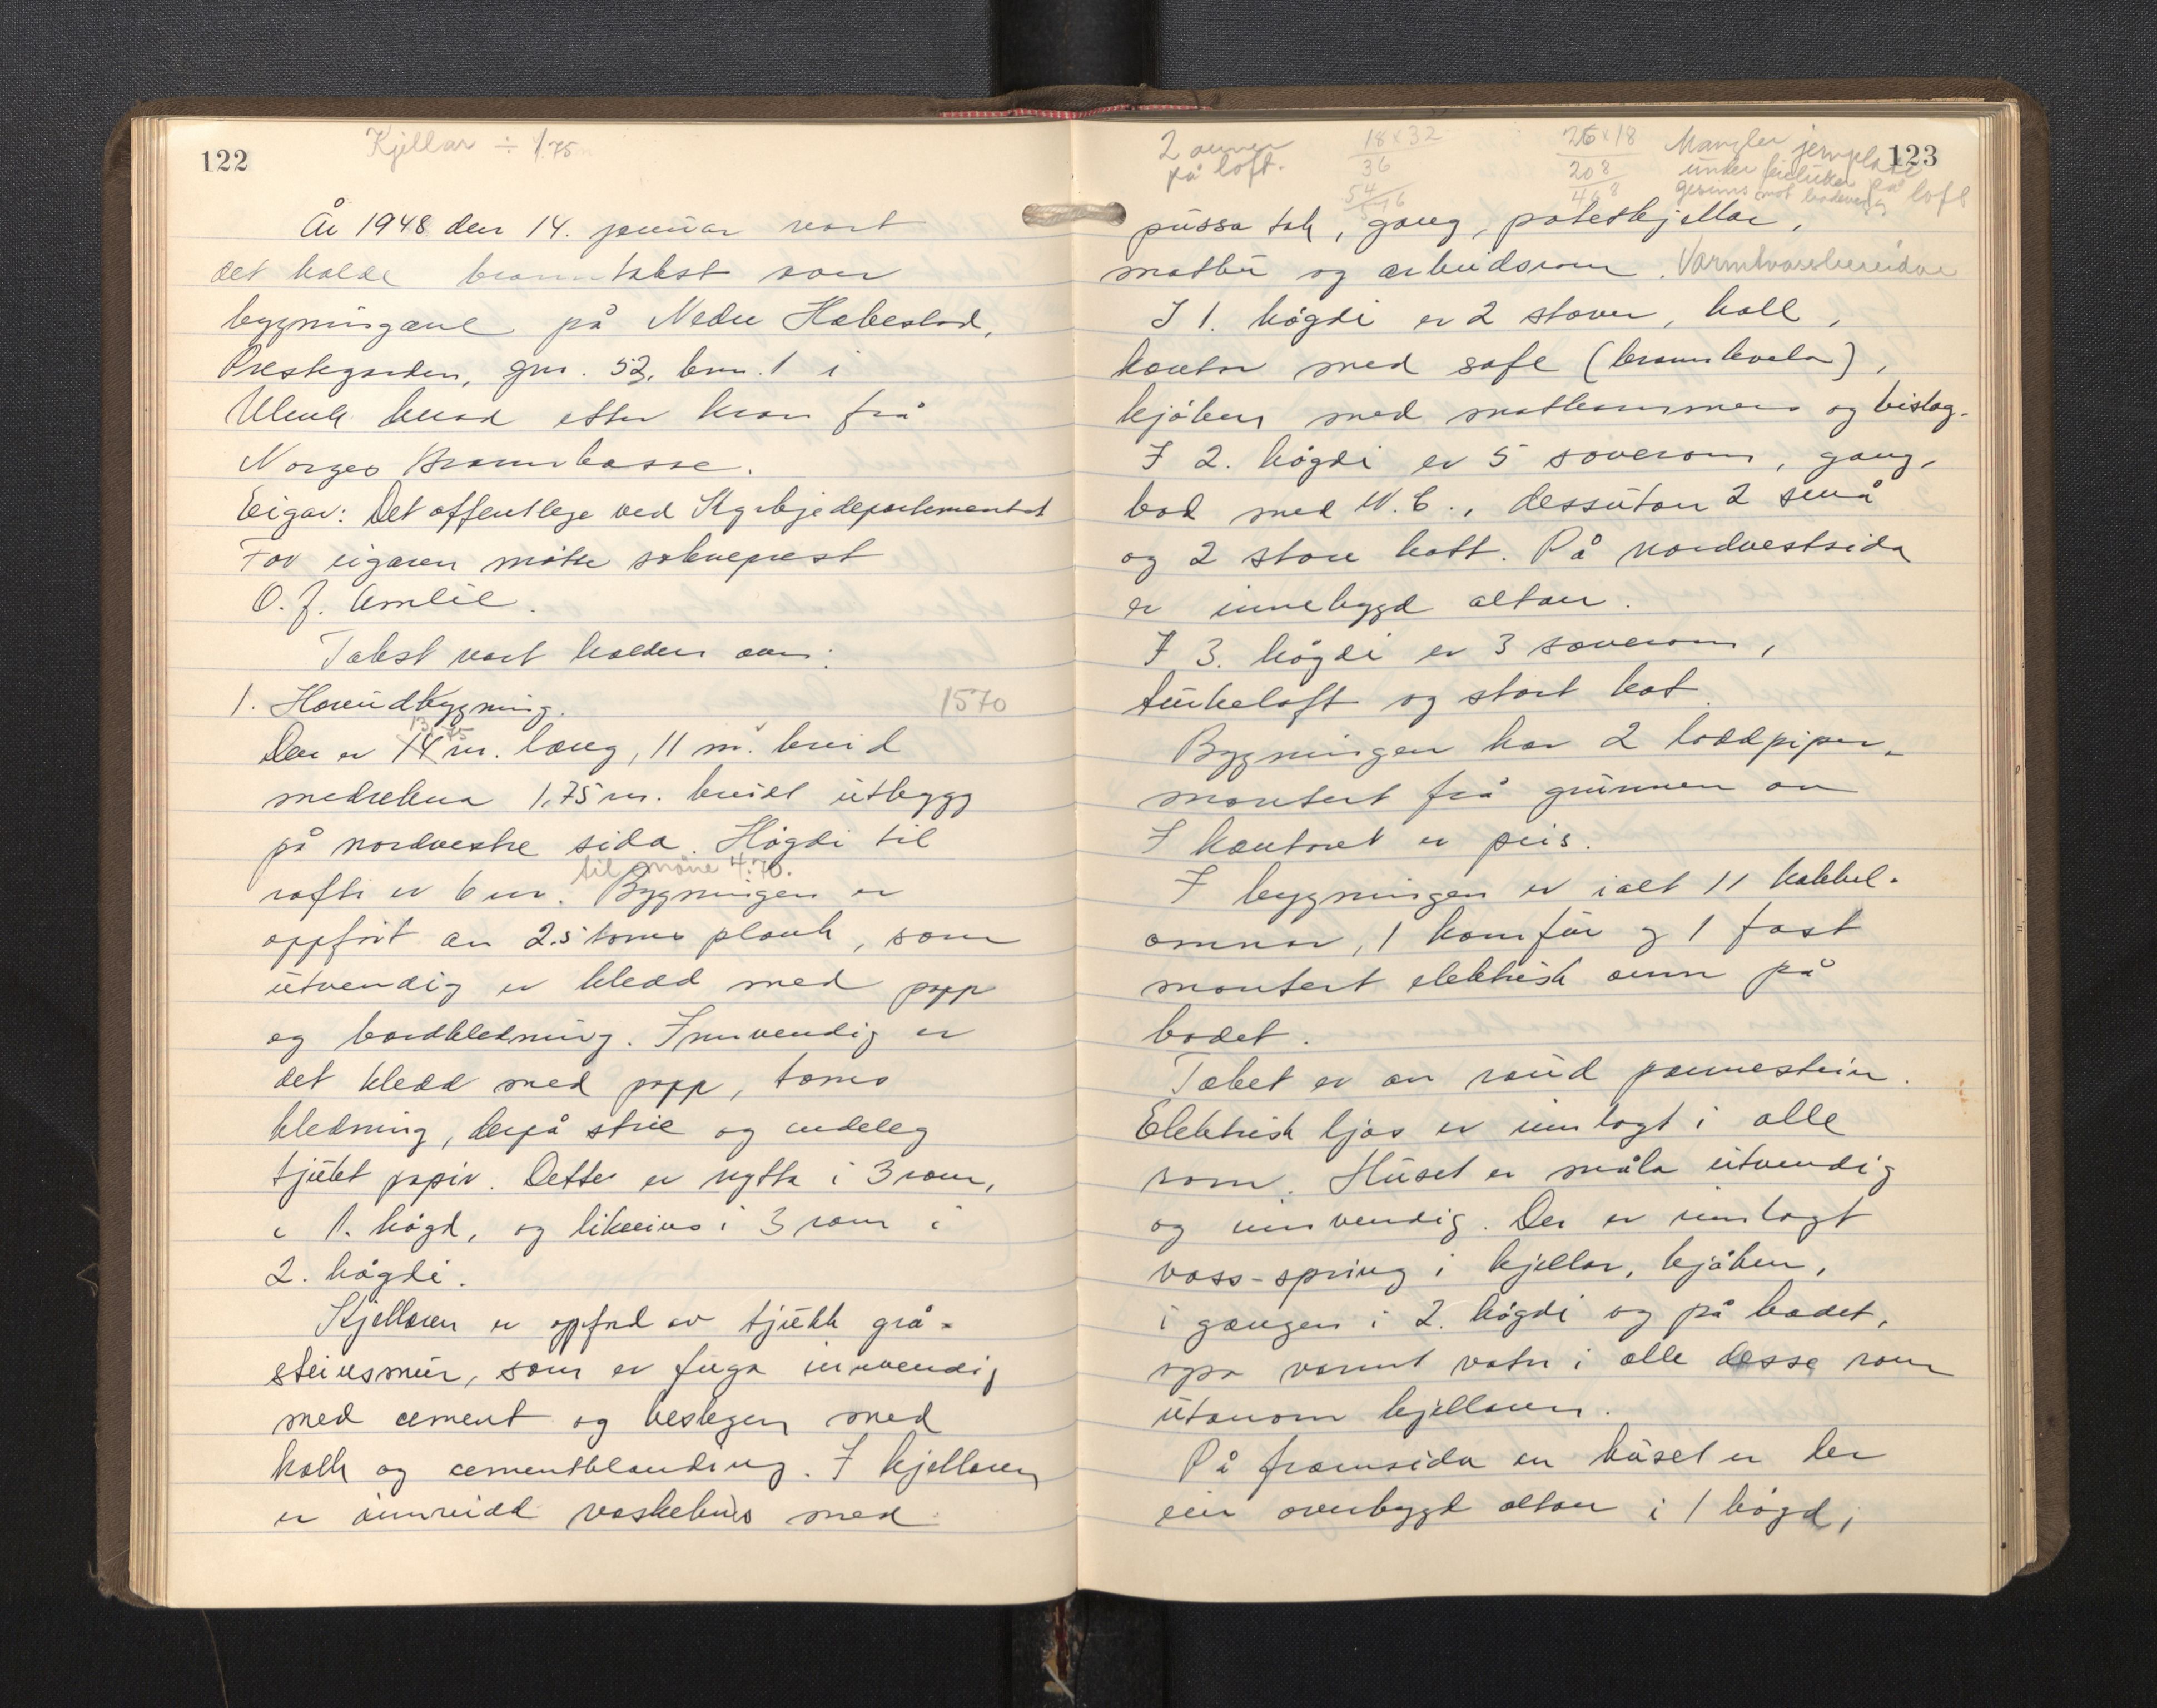 122
Kjellar ÷ 1.75 m
År 1948 den 14. januar vart
det halde branntakst over
bygningane på Nedre Habestad,
Prestegarden, gnr. 52, bnr. 1 i
herad etter krav frå
Norges Brannkasse.
Eigar: Det offentlege ved Kyrkjedepartementet
For eigaren møtte sokneprest
O. J. Amlie.
Takst vart halden over:
1. Hovudbygning. 1570
13,75
Den er 14 m. lang, 11 m. breid
medrekna 1,75 m. breidt utbygg
på nordvestre sida. Høgdi til
til møne 4.70.
rafti er 6 m. Bygningen er
oppført av 2.5 toms plank, som
utvendig er kledd med papp
og bordkledning. Innvendig er
det kledd med papp, toms
kledning, derpå strie og endeleg
tjukt papir. Dette er nytta i 3 rom,
i 1. høgd, og likeeins i 3 rom i
2. høgdi.
Kjellaren er oppførd av tjukk grå-
steinsmur, som er fuga innvendig
med cement og beslegen med
kalk og cementblanding. I kjellaren
er innreidd vaskehus med
123
2 omner
på loft.
18 x 32
36
54
576
26 x 18
208
468
Mangler jernplate
under feieluker på loft
gesims mot
pussa tak, gang, potetkjellar,
matbu og arbeidsrom. Varmtvassbereidar
I 1. høgdi er 2 stover, hall,
kontor med safe (brannkvelv),
kjøken med matkammers og bislag.
I 2. høgdi er 5 soverom, gang,
bad med W.C., dessutan 2 små
og 2 store kott. På nordvestsida
er innebygd altan.
I 3. høgdi er 3 soverom,
turkeloft og stort kot.
Bygningen har 2 loddpiper
montert frå grunnen av
I kontoret er peis.
I bygningen er ialt 11 kakkel-
omnar, 1 komfür og 1 fast
montert elektrisk omn på
badet.
Taket er av raud pannestein.
Elektrisk ljos er innlagt i alle
rom. Huset er måla utvendig
og innvendig. Der er innlagt
vass-spring i kjellar, kjøken,
i gangen i 2. høgdi og på badet,
ogso varmt vatn i alle desse rom
utanom kjellaren.
På framsida av huset er der
ein overbygd altan i 1 høgd,